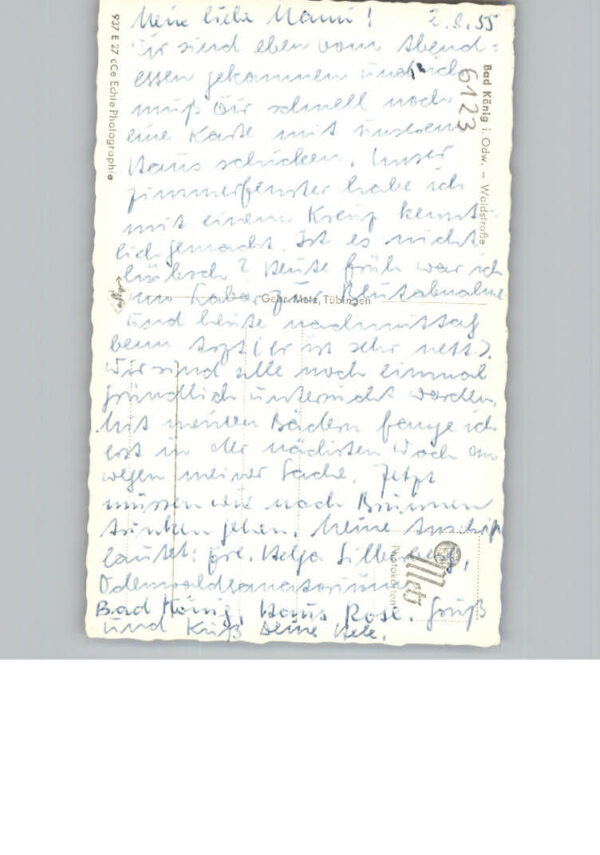 Meine liebe Mami! 2.8.55
Wir sind eben vom Abend=
essen gekommen und ich
muß Dir schnell noch
eine Karte mit unserem
Haus schicken. Unser
Zimmerfenster habe ich
mit einem Kreuz kennt-
lich gemacht. Ist es nicht
hübsch? Heute früh war ich
im Labor zur Blutabnahme
und heute nachmittag
beim Arzt (er ist sehr nett).
Wir sind alle noch einmal
gründlich untersucht worden.
Mit meinen Bädern fange ich
erst in der nächsten Woch an
wegen meiner Sache. Jetzt
müssen wir nach Brunnen
trinken gehen. Meine Anschrift
lautet: Frl. Helga
Odenwaldsanatorium
Bad König, Haus Rose. Gruß
und Kuß Deine Hele.
6123
Bad König i. Odw. – Waldstraße
937 E 27 cCe Echte Photographie
Gebr. Metz, Tübingen
Metz